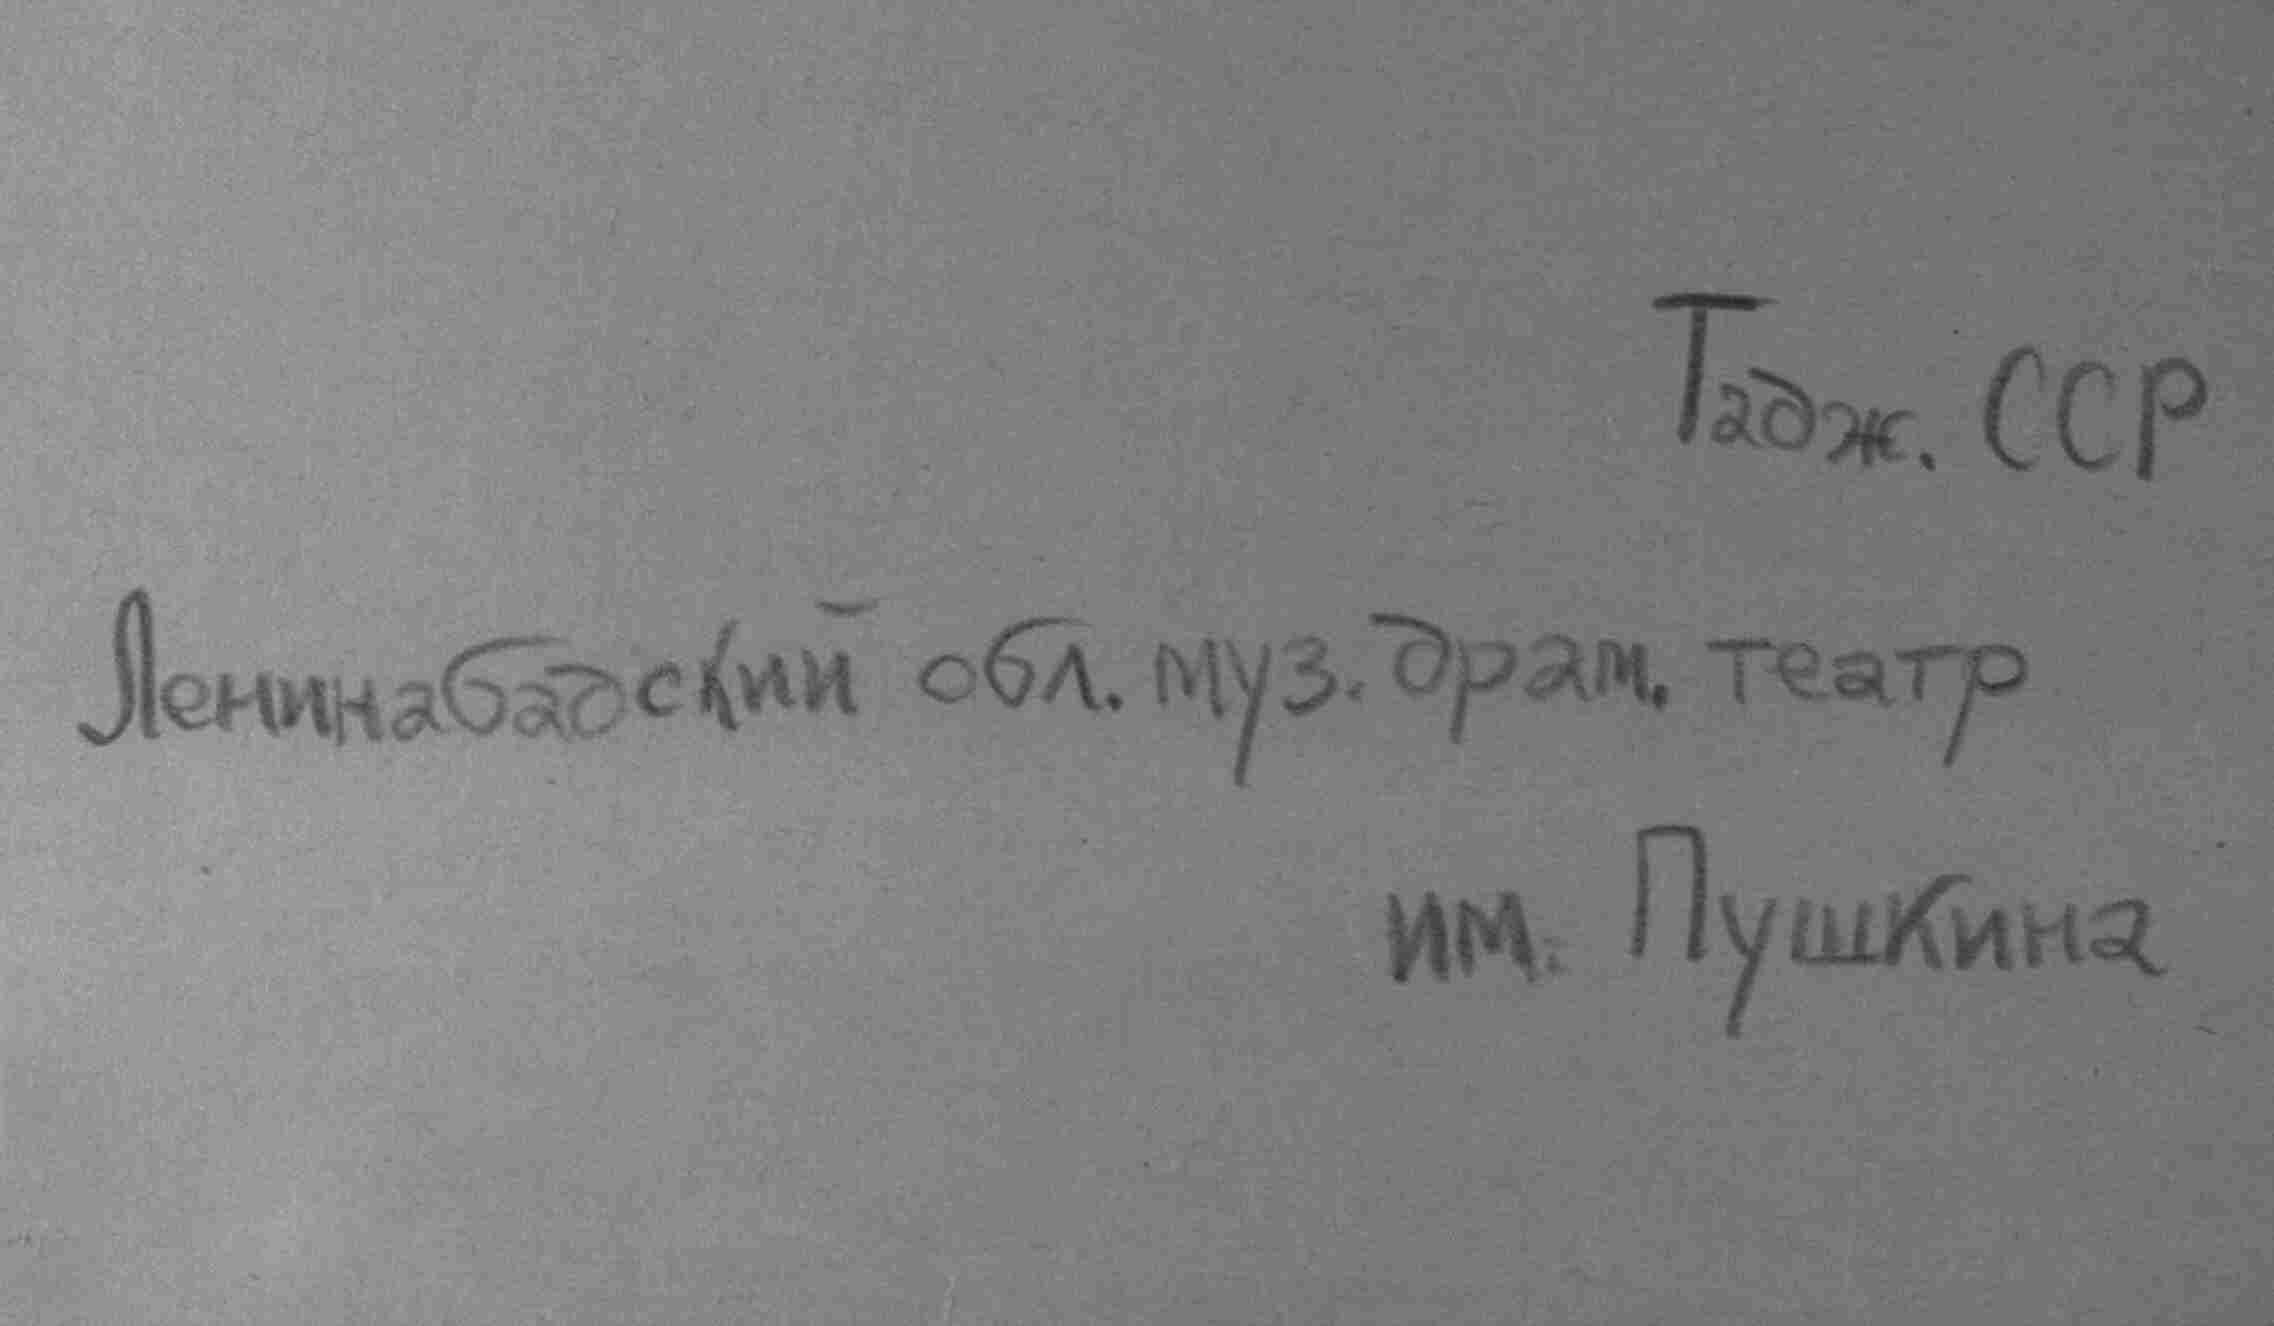 Тадж. ССР
Ленинабадский обл. муз. драм. театр
им. Пушкина